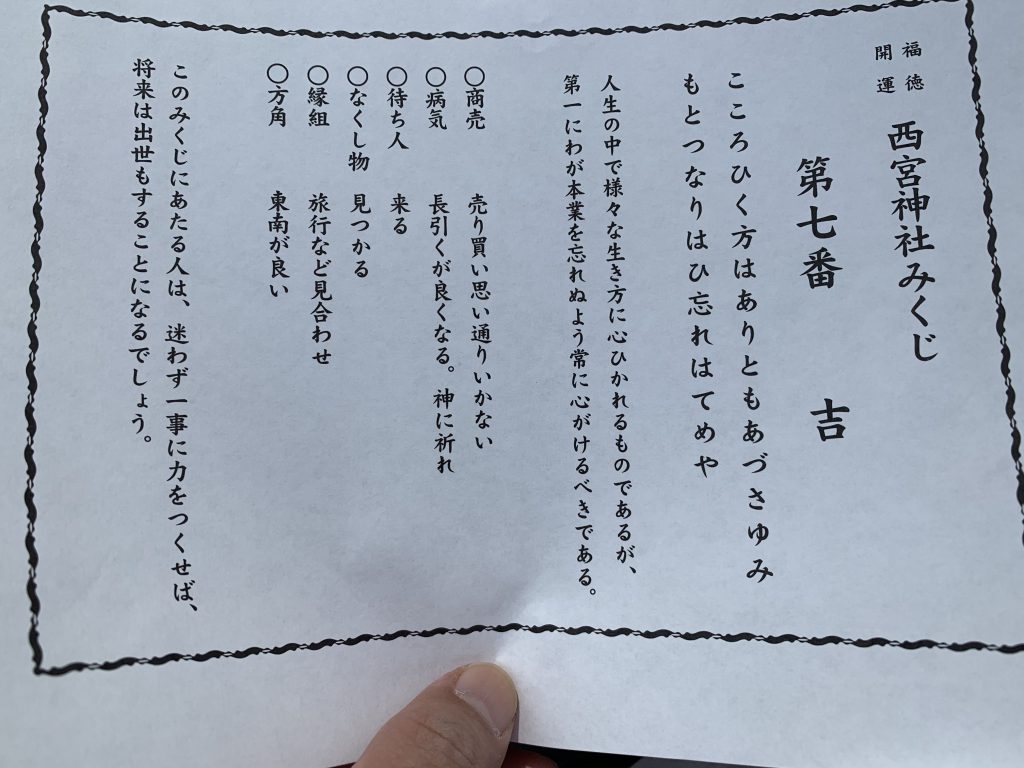 福徳
開運
西宮神社みくじ
第七番 吉
こころひく方はありともあづさゆみ
もとつなりはひ忘れはてめや
人生の中で様々な生き方に心ひかれるものであるが、
第一にわが本業を忘れぬよう常に心がけるべきである。
〇商売 売り買い思い通りいかない
〇病気 長引くが良くなる。神に祈れ
〇待ち人 来る
〇なくし物 見つかる
〇縁組 旅行など見合わせ
〇方角 東南が良い
このみくじにあたる人は、迷わず一事に力をつくせば、
将来は出世もすることになるでしょう。